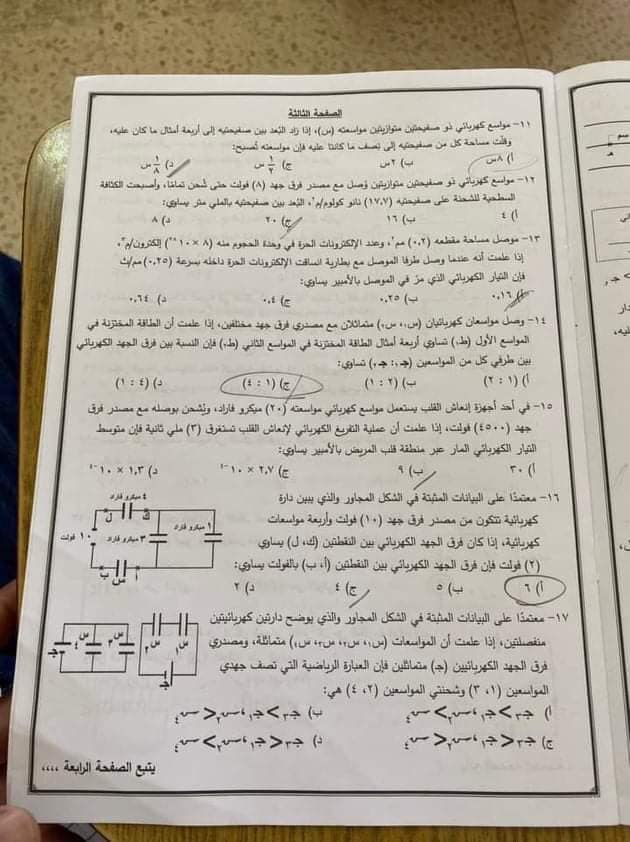 الصفحة الثالثة
١١- مواسع كهربائي ذو صفيحتين متوازيتين مواسعته (س)، إذا زاد البُعد بين صفيحتيه إلى أربعة أمثال ما كان عليه،
وقلّت مساحة كل من صفيحتيه إلى نصف ما كانتا عليه فإن مواسعته تُصبح:
أ) ٨س ب) ٢س ج) ١/٢ س د) ١/٨ س
١٢- مواسع كهربائي ذو صفيحتين متوازيتين وُصل مع مصدر فرق جهد (٨) فولت حتى شُحن تمامًا، وأصبحت الكثافة
السطحية للشحنة على صفيحتيه (١٧,٧) نانو كولوم/م٢، البُعد بين صفيحتيه بالملي متر يساوي:
أ) ٤ ب) ١٦ ج) ٢٠ د) ٨
١٣- موصل مساحة مقطعه (٠,٢) مم٢، وعدد الإلكترونات الحرة في وحدة الحجوم منه (٨ × ١٠) إلكترون/م٣،
إذا علمت أنه عندما وصل طرفا الموصل مع بطارية انساقت الإلكترونات الحرة داخله بسرعة (٠,٢٥) مم/ث
فإن التيار الكهربائي الذي مرّ في الموصل بالأمبير يساوي:
أ) ٠,١٦ ب) ٠,٢٥ ج) ٠,٤ د) ٠,٦٤
١٤- وصل مواسعان كهربائيان (س١، س٢) متماثلان مع مصدري فرق جهد مختلفين، إذا علمت أن الطاقة المختزنة في
المواسع الأول (ط١) تساوي أربعة أمثال الطاقة المختزنة في المواسع الثاني (ط٢) فإن النسبة بين فرق الجهد الكهربائي
بين طرفي كل من المواسعين (جـ١: جـ٢) تساوي:
أ) (١ : ٢) ب) (٢ : ١) ج) (١ : ٤) د) (٤ : ١)
١٥- في أحد أجهزة إنعاش القلب يستعمل مواسع كهربائي مواسعته (٢٠) ميكرو فاراد، ويُشحن بوصله مع مصدر فرق
جهد (٤٥٠٠) فولت، إذا علمت أن عملية التفريغ الكهربائي لإنعاش القلب تستغرق (٣) ملي ثانية فإن متوسط
التيار الكهربائي المار عبر منطقة قلب المريض بالأمبير يساوي:
أ) ٣٠ ب) ٩ ج) ٢,٧ × ١٠ د) ١,٣ × ١٠
١٦- معتمدًا على البيانات المثبتة في الشكل المجاور والذي يبين دارة
كهربائية تتكون من مصدر فرق جهد (١٠) فولت وأربعة مواسعات
كهربائية، إذا كان فرق الجهد الكهربائي بين النقطتين (ك، ل) يساوي
(٢) فولت فإن فرق الجهد الكهربائي بين النقطتين (أ، ب) بالفولت يساوي:
أ) ٦ ب) ٥ ج) ٤ د) ٢
٤ ميكرو فاراد
ل ك
١ ميكرو فاراد
٣ ميكرو فاراد
١٠ فولت
ب س أ
١٧- معتمدًا على البيانات المثبتة في الشكل المجاور والذي يوضح دارتين كهربائيتين
منفصلتين، إذا علمت أن المواسعات (س١، س٢، س٣، س٤) متماثلة، ومصدري
فرق الجهد الكهربائيين (جـ) متماثلين فإن العبارة الرياضية التي تصف جهدي
المواسعين (١، ٣) وشحنتي المواسعين (٢، ٤) هي:
س١ س٢ جـ
س٣ س٤ جـ
يتبع الصفحة الرابعة ،،،،